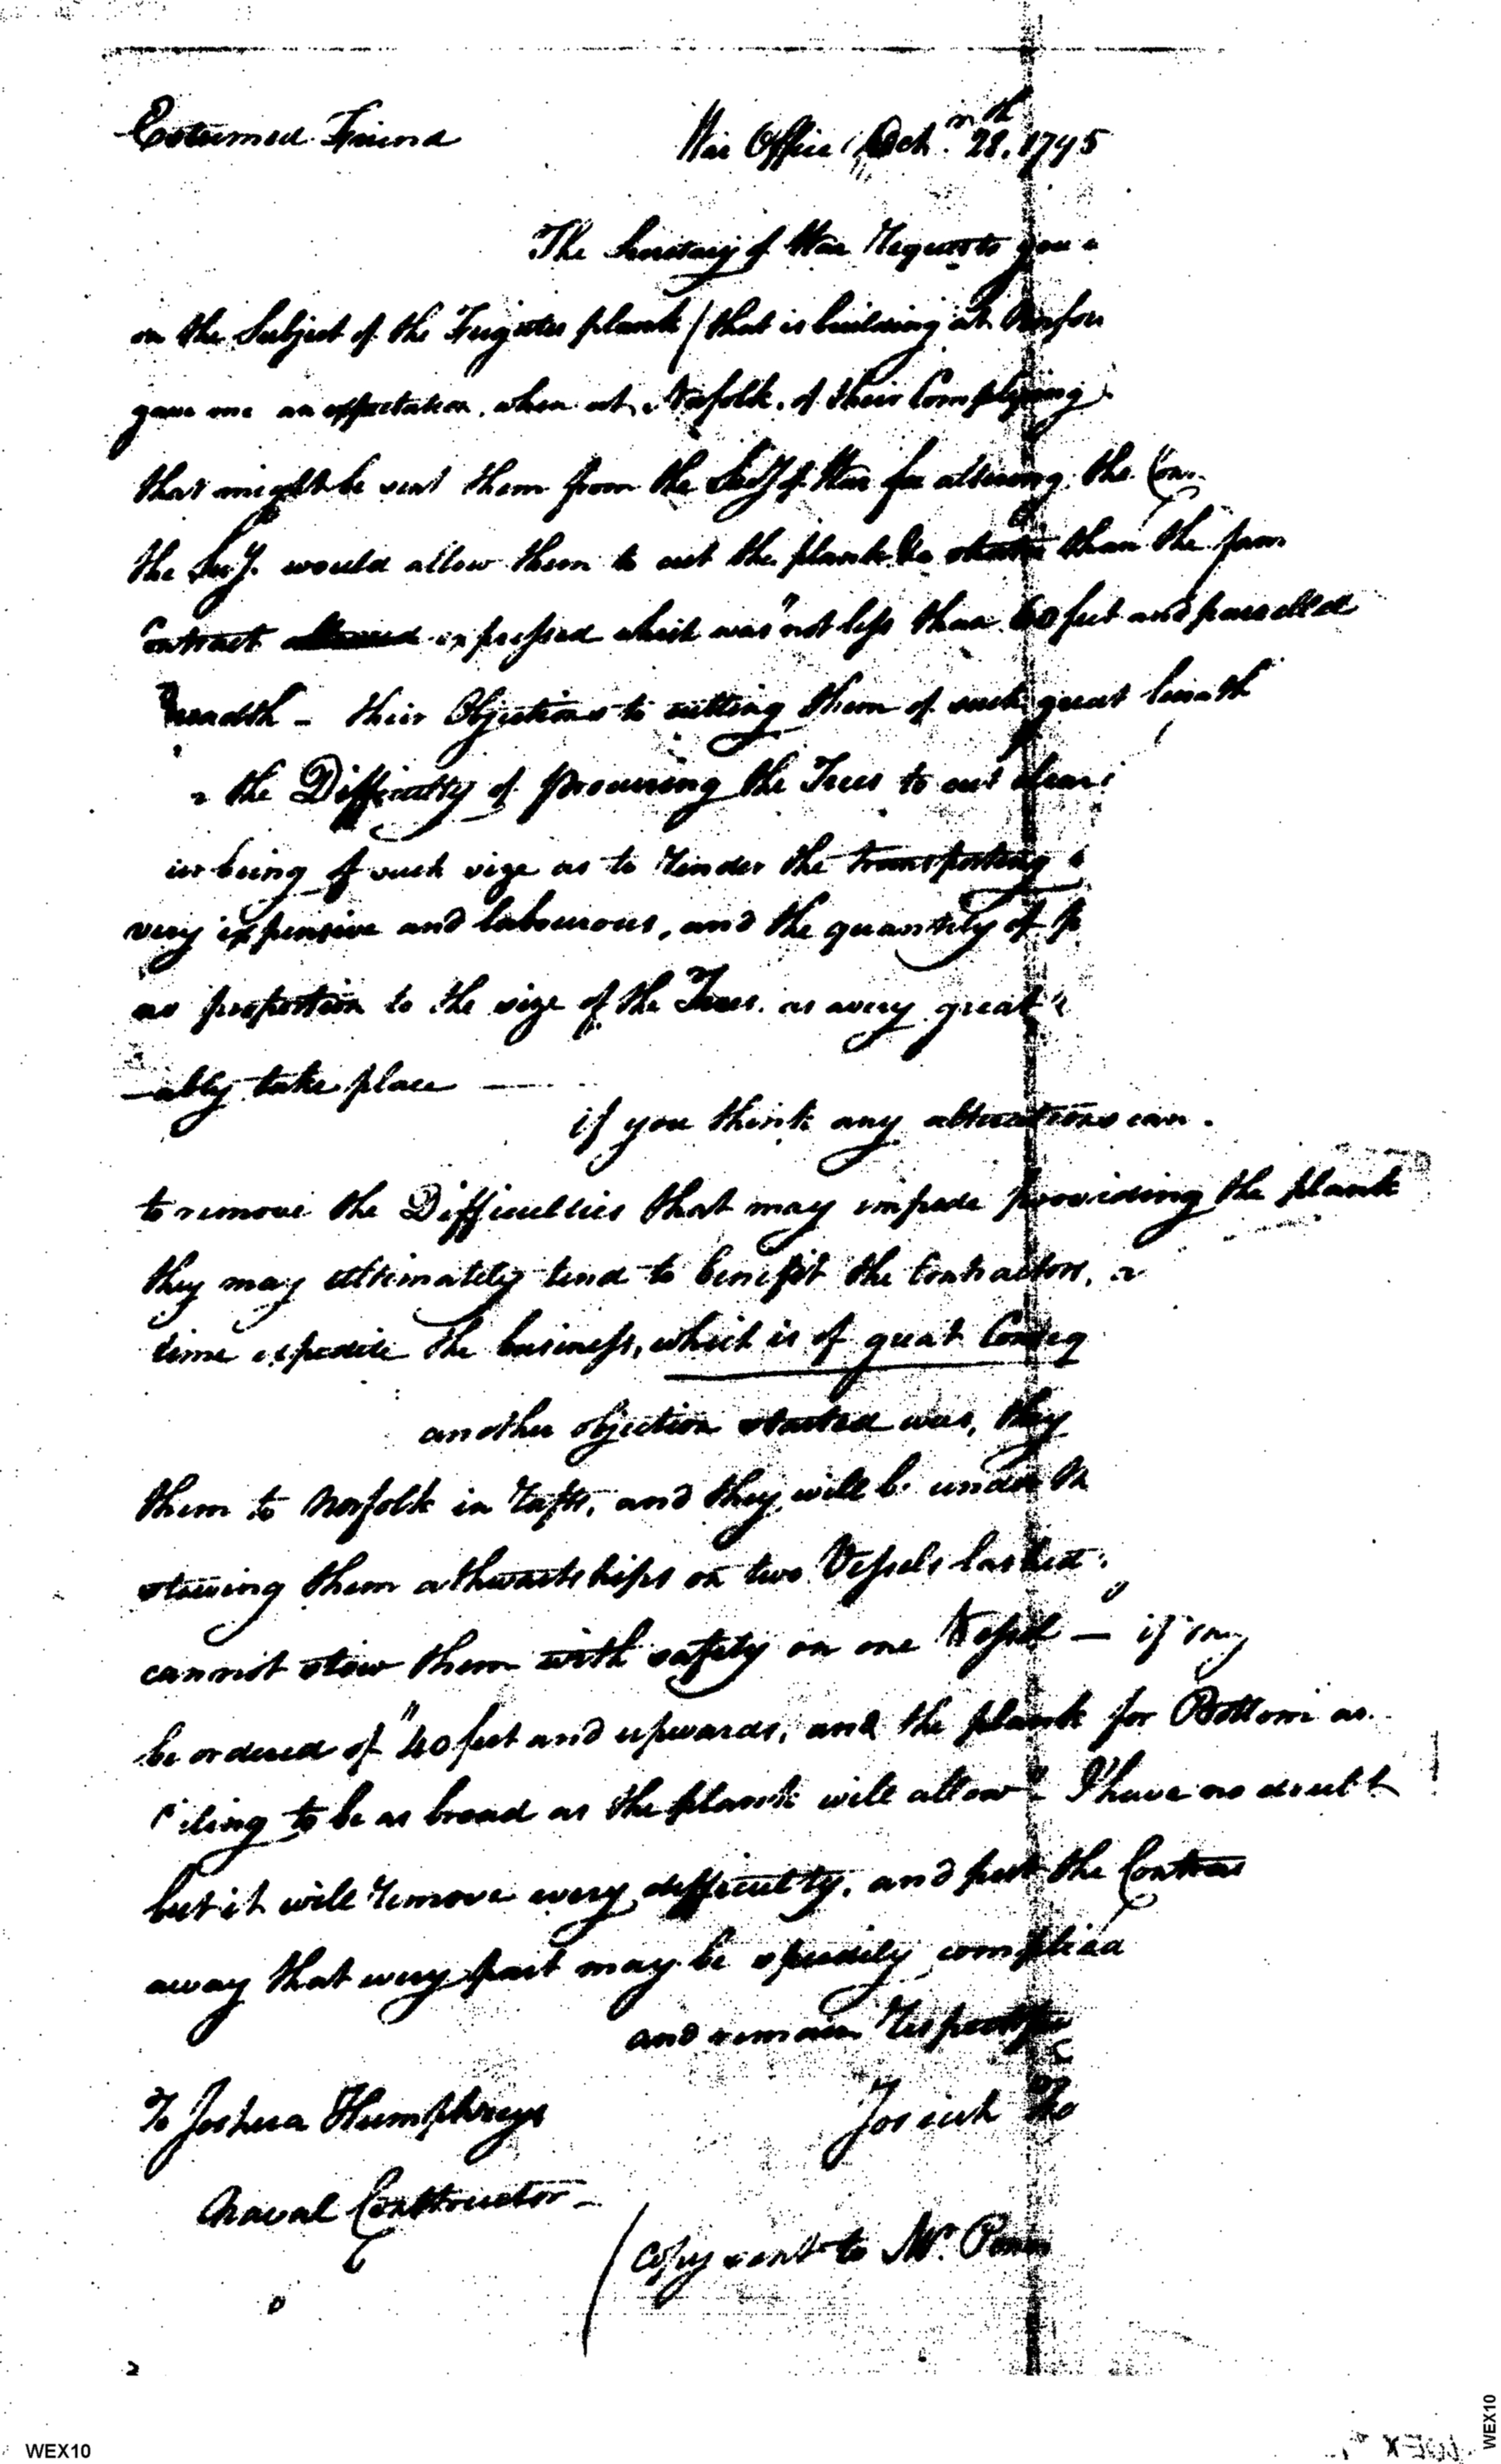 Esteemed Friend
War Office Oct. 28. 1795
The Secretary of War Requests you
on the Subject of the Frigates plank (that is building at Norfo
gave me an expectation, when at Norfolk, of their Complying
that might be sent them from the Secy of War for altering the Con
the Secy. would allow them to cut the plank than the
Contract expressed which was "not less than 60 feet and parrelled
Breadth - their Objections to cutting them of such great length
the Difficulty of procuring the Trees to cut
being of such size as to render the transporting
very expensive and labourous, and the quantity of p
no proportion to the size of the Trees. as a very great
-ably take place
if you think any alterations can
to remove the Difficulties that may impede providing the plank
they may ultimately tend to benefit the Contractors, a
time expedite the business, which is of great Conseq
another objection started was, they
them to Norfolk in rafts, and they will be under th
stowing them athwartships on two Vessels lashed
cannot stow them with safety on one Vessel - if
be ordered of "40 feet and upwards, and the plank for Bottom
iling to be as broad as the plank will allow" I have no doubt
but it will remove every difficulty, and put the Contrac
away that every part may be speedily complied
and remain Respectfu
To Joshua Humphreys
Josiah Fo
Naval Constructor -
(copy sent to Mr.
2
WEX10
WEX10